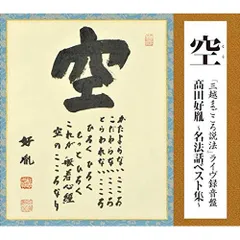 空
「三越まごころ説法」ライヴ録音盤
髙田好胤
～名法話ベスト集～
空
かたよらないこころ
こだわらないこころ
とらわれないこころ
ひろく ひろく
もっとひろく
これが般若心経
空のこころなり
好胤